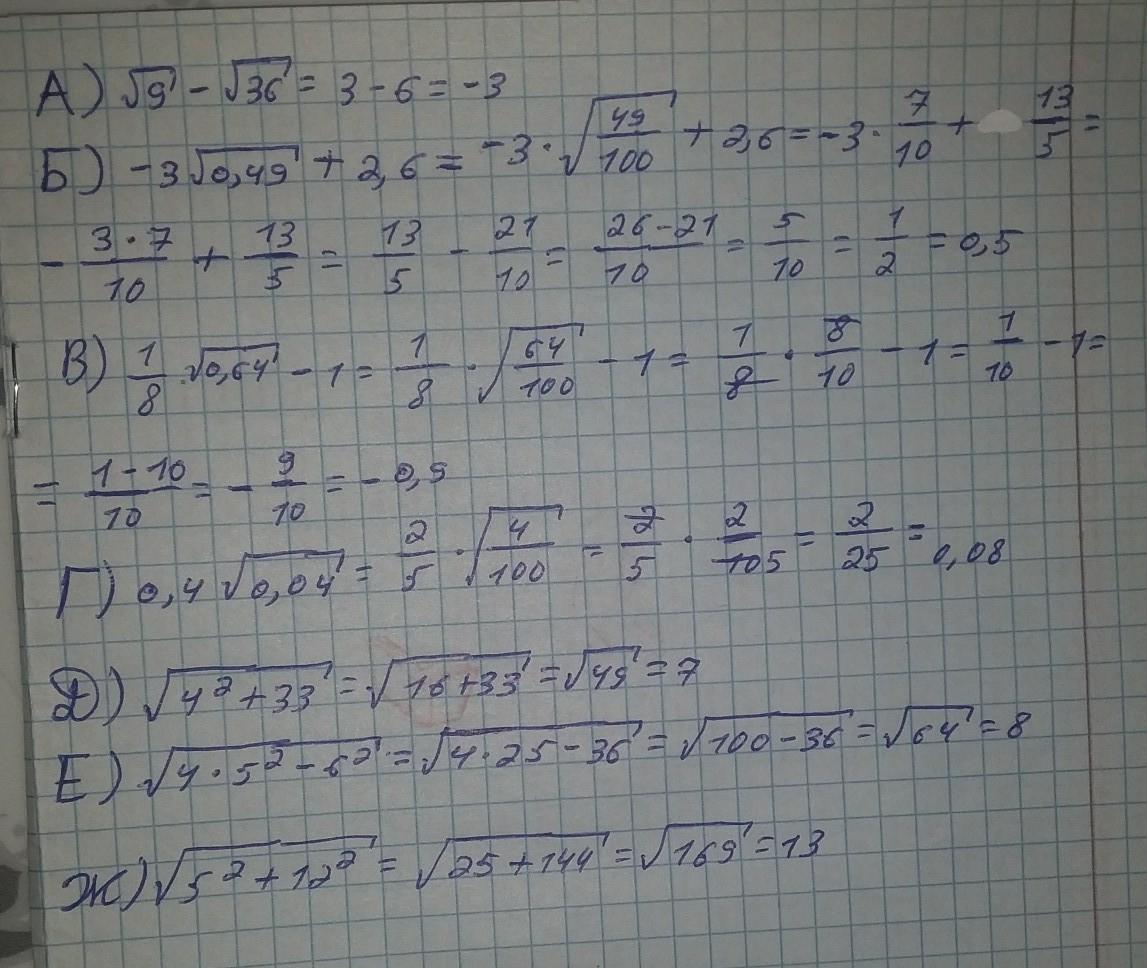 А) √9 - √36 = 3 - 6 = -3
Б) -3√0,49 + 2,6 = -3 · √(49/100) + 2,6 = -3 · 7/10 + 13/5 =
- 3·7/10 + 13/5 = 13/5 - 21/10 = 26-21/10 = 5/10 = 1/2 = 0,5
В) 1/8 · √0,64 - 1 = 1/8 · √(64/100) - 1 = 1/8 · 8/10 - 1 = 1/10 - 1 =
= 1-10/10 = - 9/10 = - 0,9
Г) 0,4 √0,04 = 2/5 · √(4/100) = 2/5 · 2/10 5 = 2/25 = 0,08
Д) √(4² + 33) = √(16 + 33) = √49 = 7
Е) √(4 · 5² - 6²) = √(4 · 25 - 36) = √(100 - 36) = √64 = 8
Ж) √(5² + 12²) = √(25 + 144) = √169 = 13